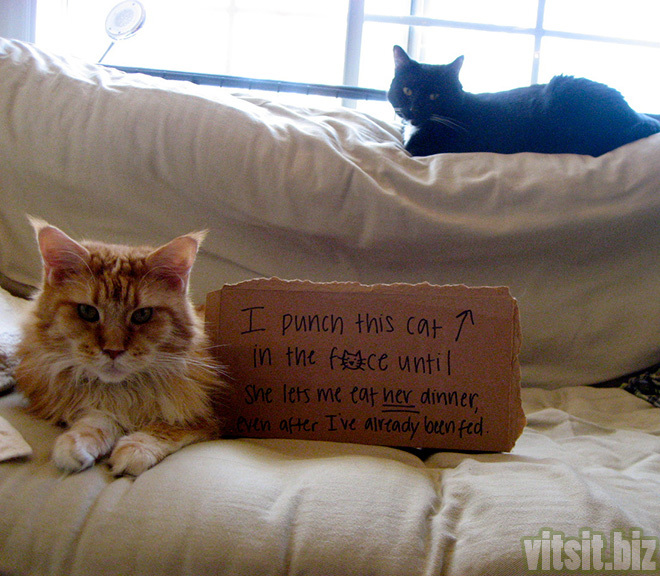 I punch this cat ↗
in the face until
She lets me eat her dinner,
even after I've already been fed.
vitsit.biz